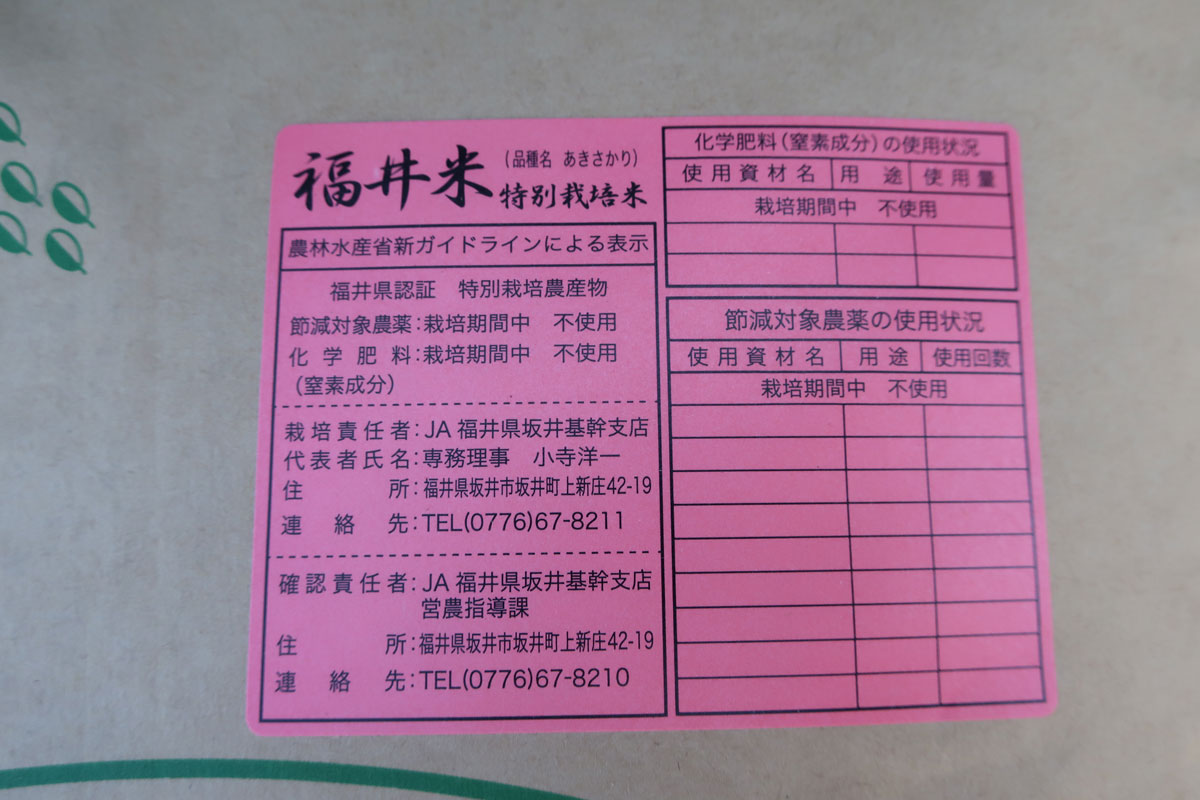 福井米
(品種名 あきさかり)
特別栽培米
農林水産省新ガイドラインによる表示
福井県認証 特別栽培農産物
節減対象農薬:栽培期間中 不使用
化学肥料:栽培期間中 不使用
(窒素成分)
栽培責任者:JA 福井県坂井基幹支店
代表者氏名:専務理事 小寺洋一
住所:福井県坂井市坂井町上新庄42-19
連絡先:TEL(0776)67-8211
確認責任者:JA 福井県坂井基幹支店
営農指導課
住所:福井県坂井市坂井町上新庄42-19
連絡先:TEL(0776)67-8210
化学肥料(窒素成分)の使用状況
使用資材名 用途 使用量
栽培期間中 不使用
節減対象農薬の使用状況
使用資材名 用途 使用回数
栽培期間中 不使用